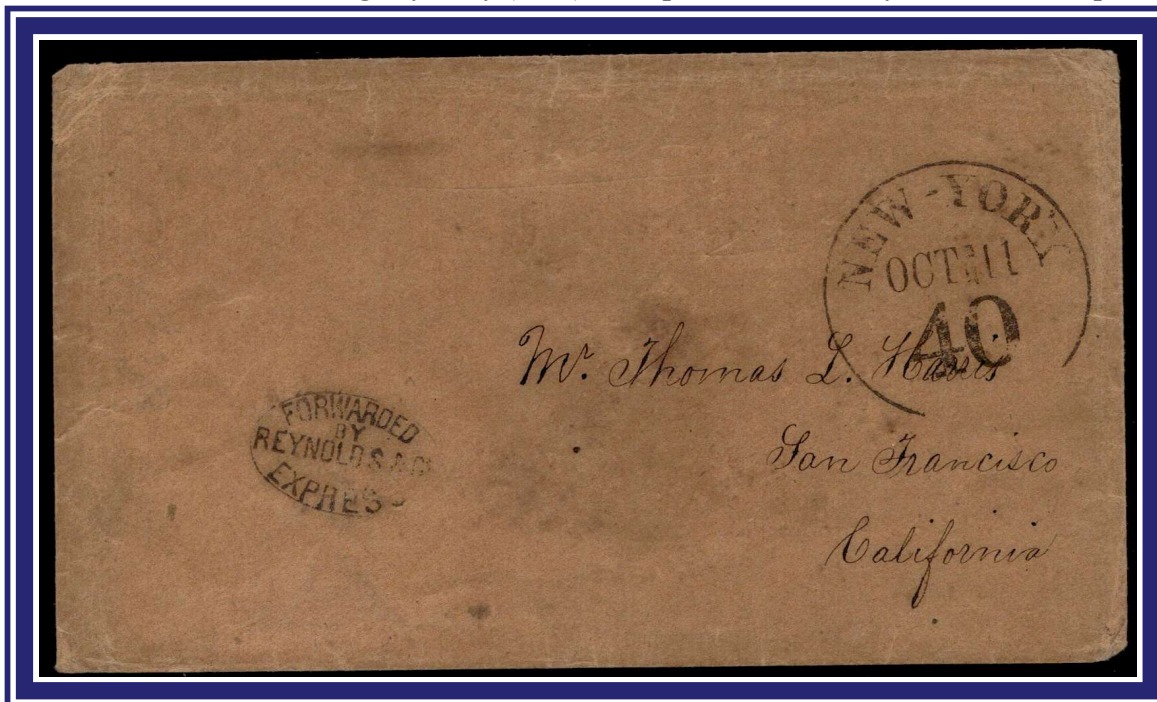 NEW-YORK
OCT 11
40
Mr. Thomas L. Harris
San Francisco
California
FORWARDED
BY
REYNOLDS & Co
EXPRESS